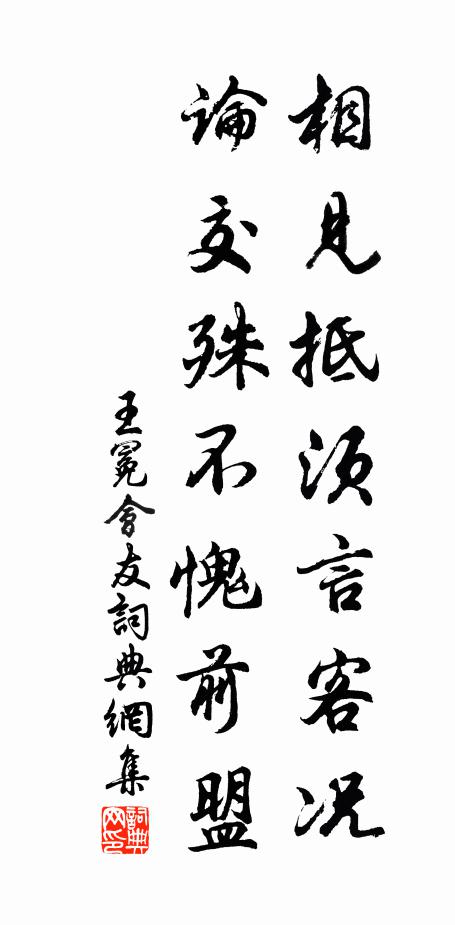 相見抵須言客况
論交殊不愧前盟
王冕會友詞典網集
詞典
网印